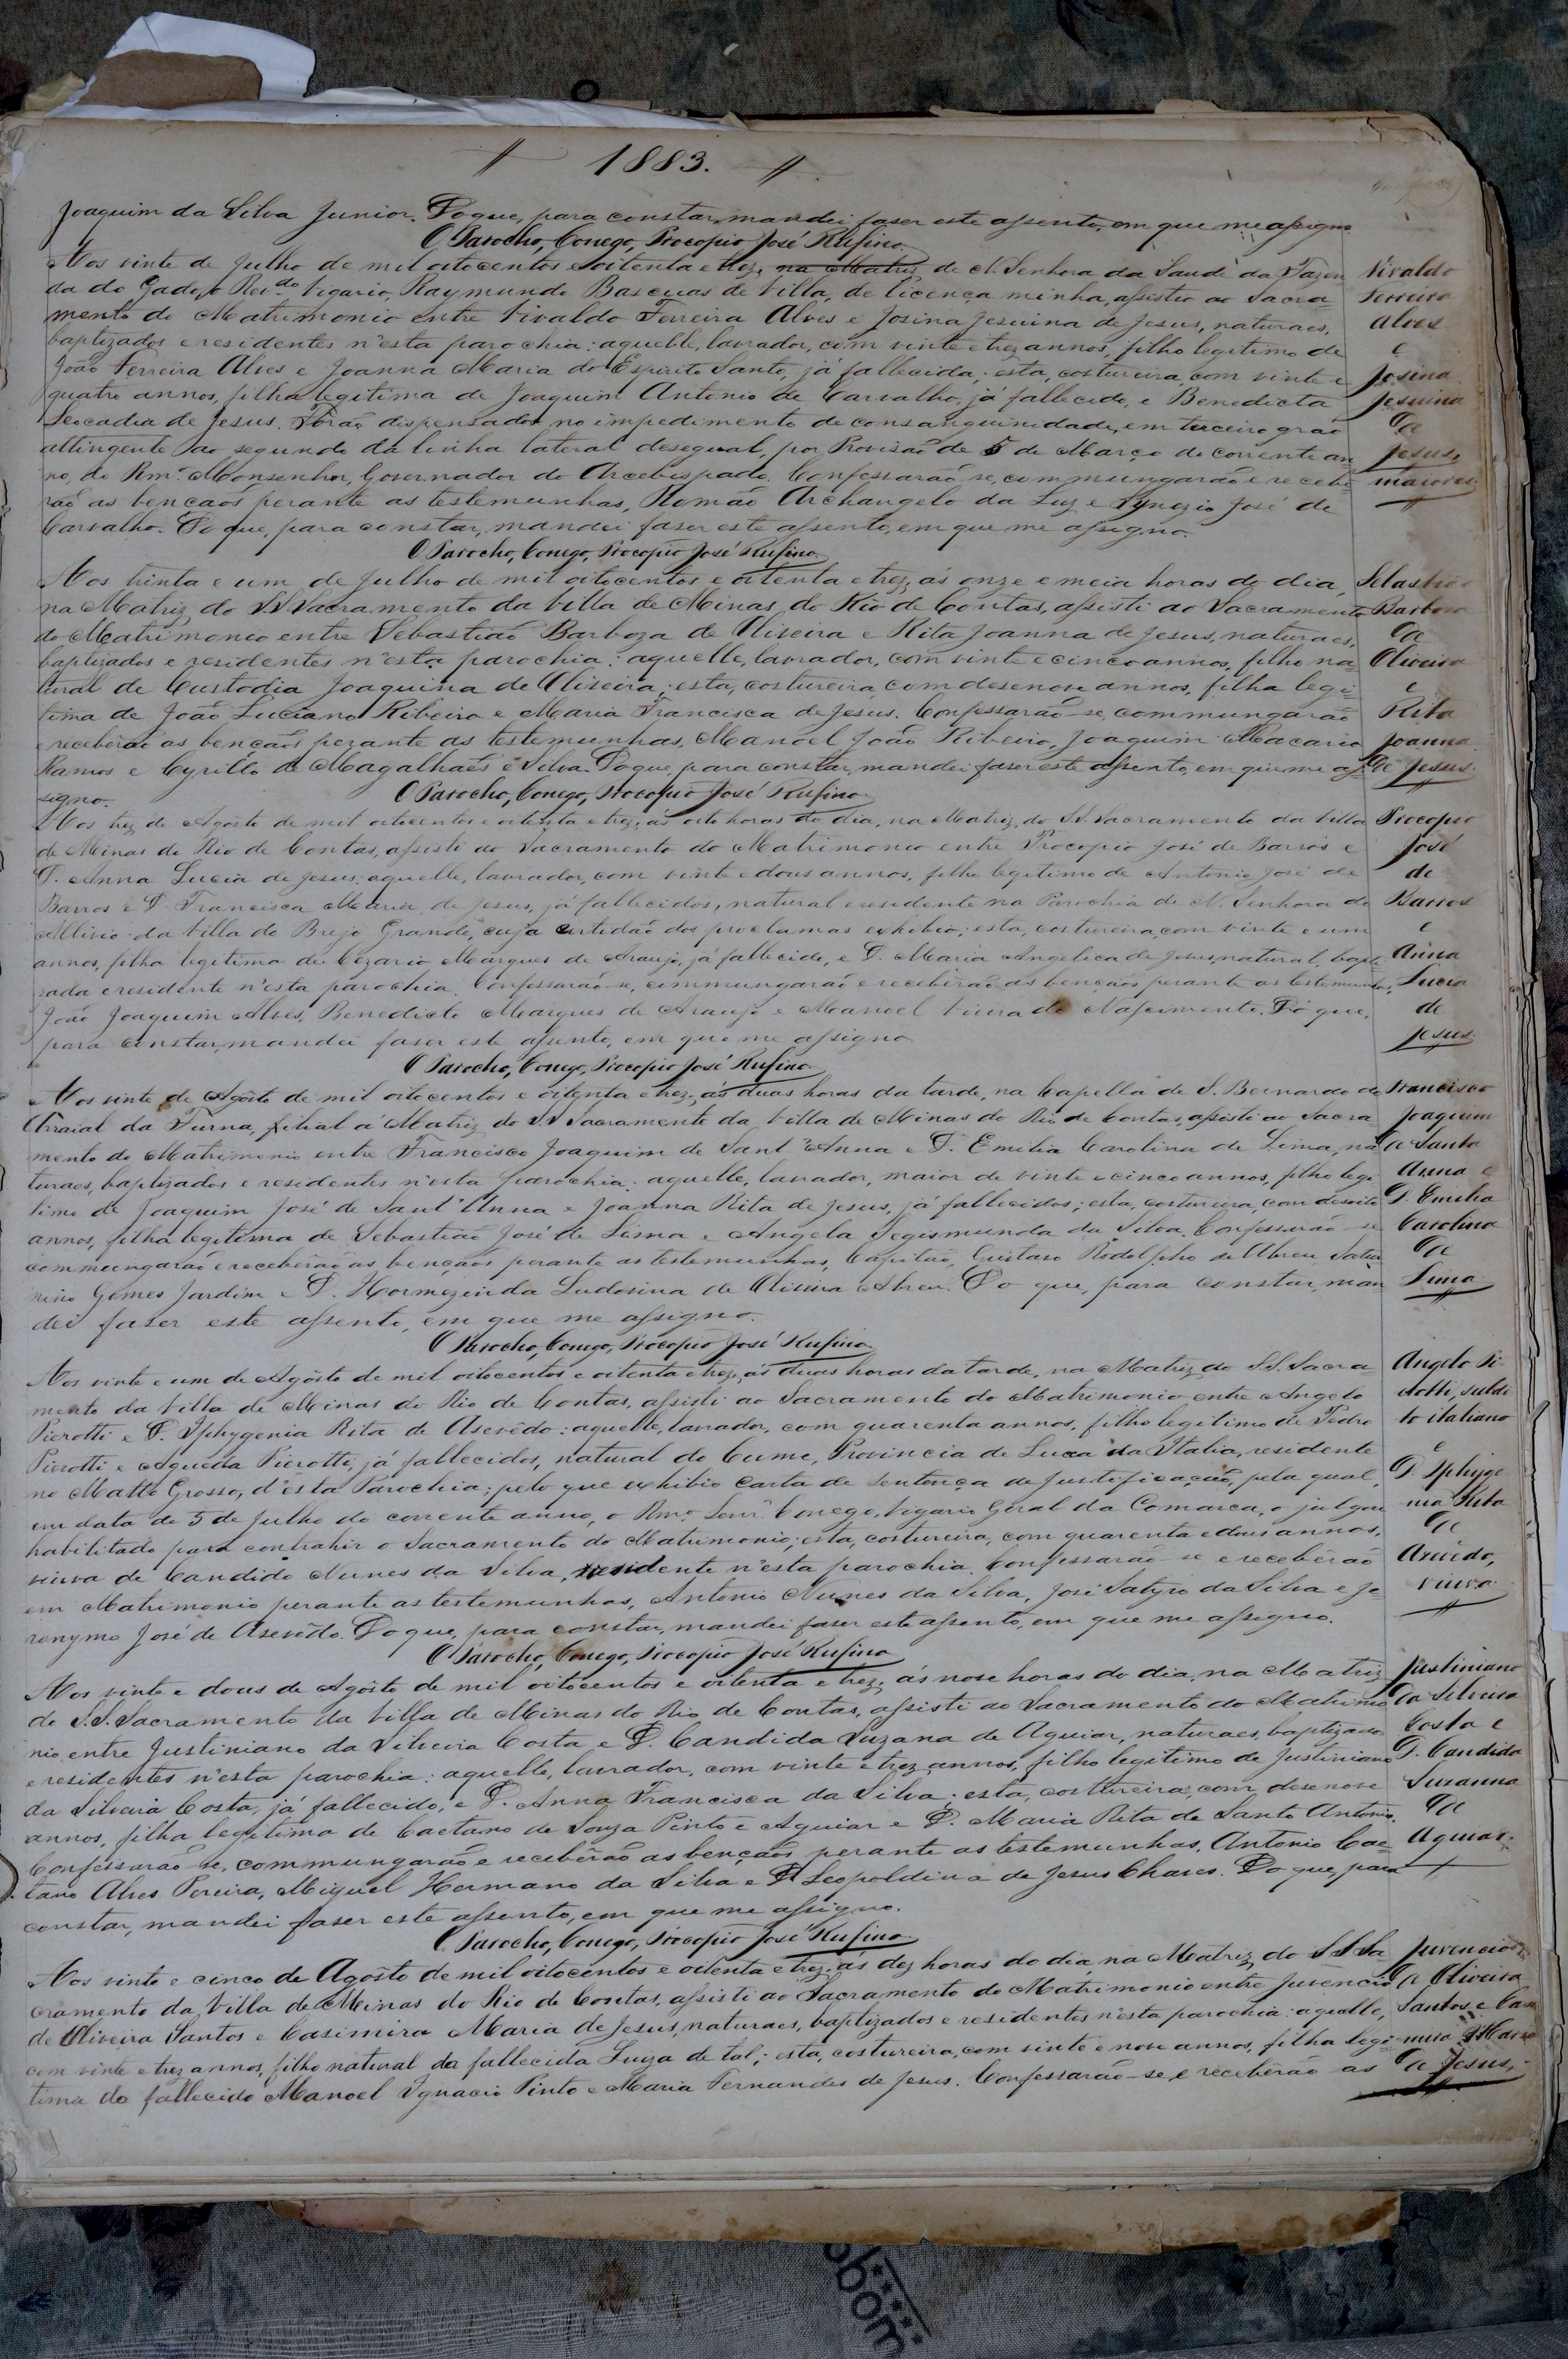 1883.
Joaquim da Silva Junior. Do que, para constar, mandei faser este assento, em que me assigno
O Parocho, Conego, Procopio José Rufino.
Aos vinte de Julho de mil oitocentos e oitenta e trez, na Matriz de N. Senhora da Saude da Fazen
da do Gado, o Rev.do Vigario, Raymundo Bascuas de Villa, de licença minha, assistio ao Sacra
mento do Matrimonio entre Vivaldo Ferreira Alves e Josina Jesuina de Jesus, naturaes,
baptizados e residentes n'esta parochia: aquelle, lavrador, com vinte e trez annos, filho legitimo de
João Ferreira Alves e Joanna Maria do Espirito Santo, já fallecida; esta, costureira, com vinte e
quatro annos, filha legitima de Joaquim Antonio de Carvalho, já fallecido, e Benedicta
Leocadia de Jesus. Forão dispensados no impedimento de consanguinidade, em terceiro grao
attingente ao segundo da linha lateral desegual, por Provisão de 5 de Março do corrente an
no, do Rm.º Monsenhor, Governador do Arcebispado. Confessarão-se, commungarão e recebe-
rão as bençãos perante as testemunhas, Romão Archangelo da Luz e Ignezio José de
Carvalho. Do que, para constar, mandei faser este assento, em que me assigno.
O Parocho, Conego, Procopio José Rufino.
Vivaldo
Ferreira
Alves
e
Josina
Jesuina
de
Jesus,
maiores
Aos trinta e um de Julho de mil oitocentos e oitenta e trez, ás onze e meia horas do dia,
na Matriz do SS. Sacramento da Villa de Minas do Rio de Contas, assisti ao Sacramento
do Matrimonio entre Sebastião Barboza de Oliveira e Rita Joanna de Jesus, naturaes,
baptizados e residentes n'esta parochia: aquelle, lavrador, com vinte e cinco annos, filho na
tural de Custodia Joaquina de Oliveira; esta, costureira, com desenove annos, filha legi-
tima de João Luciano Ribeiro e Maria Francisca de Jesus. Confessarão-se, commungarão
e receberão as bençãos perante as testemunhas, Manoel João Ribeiro, Joaquim Macario
Ramos e Cyrillo de Magalhães e Silva. Do que, para constar, mandei faser este assento, em que me as-
signo.
O Parocho, Conego, Procopio José Rufino.
Sebastião
Barbosa
de
Oliveira
e
Rita
Joanna
de Jesus.
Aos trez de Agôsto de mil oitocentos e oitenta e trez, ás oito horas do dia, na Matriz do SS. Sacramento da Villa
de Minas do Rio de Contas, assisti ao Sacramento do Matrimonio entre Procopio José de Barros e
D. Anna Lucia de Jesus: aquelle, lavrador, com vinte e dous annos, filho legitimo de Antonio José de
Barros e D. Francisca Maria de Jesus, já fallecidos, natural e residente na Parochia de N. Senhora do
Allivio da Villa do Brejo Grande, cuja certidão dos proclamas exhibio; esta, costureira, com vinte e um
annos, filha legitima de Cezario Marques de Araujo, já fallecido, e D. Maria Angelica de Jesus, natural, bapti
zada e residente n'esta parochia. Confessarão-se, commungarão e receberão as bençãos perante as testemunhas,
João Joaquim Alves, Benedicto Marques de Araujo e Manoel Vieira do Nascimento. Do que,
para constar, mandei faser este assento, em que me assigno
O Parocho, Conego, Procopio José Rufino.
Procopio
José
de
Barros
e
Anna
Lucia
de
Jesus.
Aos vinte de Agôsto de mil oitocentos e oitenta e trez, ás duas horas da tarde, na Capella de S. Bernardo do
Arraial da Furna, filial á Matriz do SS. Sacramento da Villa de Minas do Rio de Contas, assisti ao Sacra
mento do Matrimonio entre Francisco Joaquim de Sant'Anna e D. Emilia Carolina de Lima, na
turaes, baptizados e residentes n'esta parochia: aquelle, lavrador, maior de vinte e cinco annos, filho legi
timo de Joaquim José de Sant'Anna e Joanna Rita de Jesus, já fallecidos; esta, costureira, com desoito
annos, filha legitima de Sebastião José de Lima e Angela Segismunda da Silva. Confessarão-se
commungarão e receberão as bençãos perante as testemunhas, Capitão, Gustavo Rodolpho de Abreu, Satur
nino Gomes Jardim e D. Hormezinda Ludosina de Oliveira Abreu. Do que, para constar, man
dei faser este assento, em que me assigno.
O Parocho, Conego, Procopio José Rufino.
Francisco
Joaquim
de Santa
Anna e
D. Emilia
Carolina
de
Lima
Aos vinte e um de Agôsto de mil oitocentos e oitenta e trez, ás duas horas da tarde, na Matriz do SS. Sacra
mento da Villa de Minas do Rio de Contas, assisti ao Sacramento do Matrimonio entre Angelo
Pierotti e D. Iphygenia Rita de Asevêdo: aquelle, lavrador, com quarenta annos, filho legitimo de Pedro
Pierotti e Agueda Pierotti, já fallecidos, natural do Cume, Provincia de Luca da Italia, residente
no Matto Grosso, d'esta Parochia; pelo que exhibio Carta de Sentença de Justificação, pela qual,
em data de 5 de Julho do corrente anno, o Rm.º Senr. Conego, Vigario Geral da Comarca, o julgou
habilitado para contrahir o Sacramento do Matrimonio; esta, costureira, com quarenta e dous annos,
viuva de Candido Nunes da Silva, residente n'esta parochia. Confessarão-se e receberão
em Matrimonio perante as testemunhas, Antonio Nunes da Silva, José Satyro da Silva e Je-
ronymo José de Asevêdo. Do que, para constar, mandei faser este assento, em que me assigno.
O Parocho, Conego, Procopio José Rufino
Angelo Pi-
erotti, subdi
to italiano
e
D. Iphyge
nia Rita
de
Azevêdo,
viuva.
Aos vinte e dous de Agôsto de mil oitocentos e oitenta e trez, ás nove horas do dia, na Matriz
do S.S. Sacramento da Villa de Minas do Rio de Contas, assisti ao Sacramento do Matrimo
nio entre Justiniano da Silveira Costa e D. Candida Suzana de Aguiar, naturaes, baptizados
e residentes n'esta parochia: aquelle, lavrador, com vinte e trez annos, filho legitimo de Justiniano
da Silveira Costa, já fallecido, e D. Anna Francisca da Silva; esta, costureira, com desenove
annos, filha legitima de Caetano de Souza Pinto e Aguiar e D. Maria Rita de Santo Antonio.
Confessarão-se, commungarão e receberão as bençãos perante as testemunhas, Antonio Cae-
tano Alves Pereira, Miguel Hermano da Silva e D. Leopoldina de Jesus Chaves. Do que, para
constar, mandei faser este assento, em que me assigno.
O Parocho, Conego, Procopio José Rufino
Justiniano
da Silveira
Costa e
D. Candida
Suzanna
de
Aguiar.
Aos vinte e cinco de Agôsto de mil oitocentos e oitenta e trez, ás dez horas do dia, na Matriz do SS. Sa
cramento da Villa de Minas do Rio de Contas, assisti ao Sacramento do Matrimonio entre Juvencio
de Oliveira Santos e Casimira Maria de Jesus, naturaes, baptizados e residentes n'esta parochia: aquelle,
com vinte e trez annos, filho natural da fallecida Luiza de tal; esta, costureira, com vinte e nove annos, filha legi-
tima do fallecido Manoel Ignacio Pinto e Maria Fernandes de Jesus. Confessarão-se, e receberão as
Juvencio
de Oliveira
Santos e Casi
mira Maria
de Jesus,